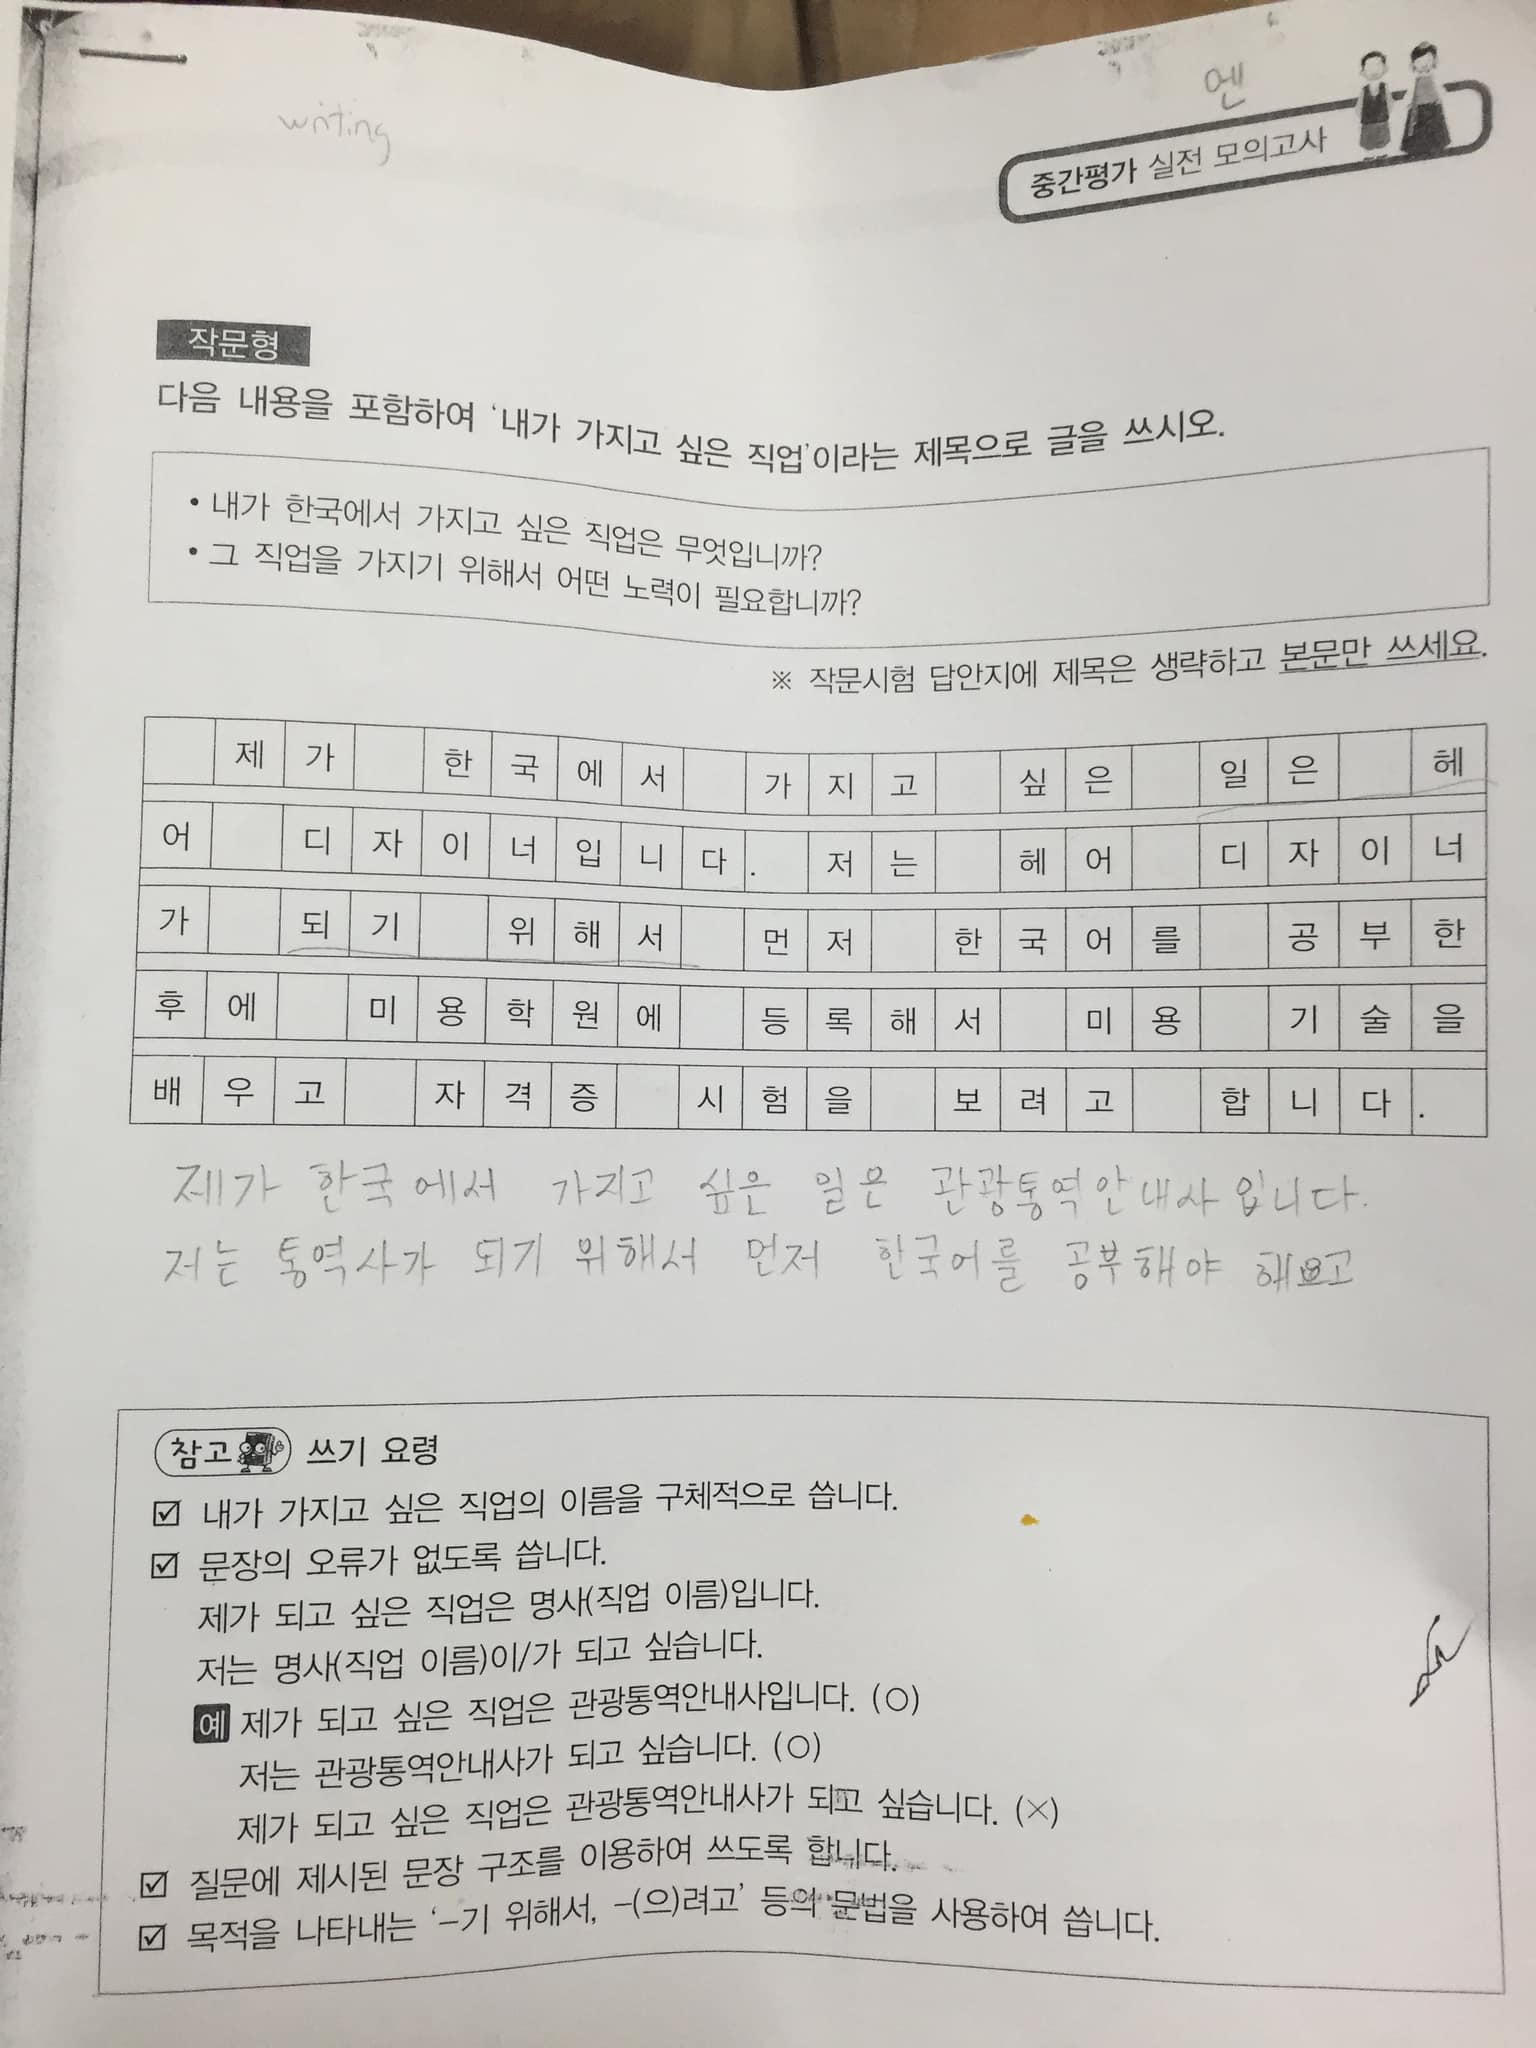 writing
엔
중간평가 실전 모의고사
작문형
다음 내용을 포함하여 '내가 가지고 싶은 직업'이라는 제목으로 글을 쓰시오.
• 내가 한국에서 가지고 싶은 직업은 무엇입니까?
• 그 직업을 가지기 위해서 어떤 노력이 필요합니까?
※ 작문시험 답안지에 제목은 생략하고 본문만 쓰세요.
제가 한국에서 가지고 싶은 일은 헤
어 디자이너입니다. 저는 헤어 디자이너
가 되기 위해서 먼저 한국어를 공부한
후에 미용학원에 등록해서 미용 기술을
배우고 자격증 시험을 보려고 합니다.
제가 한국에서 가지고 싶은 일은 관광통역안내사입니다.
저는 통역사가 되기 위해서 먼저 한국어를 공부해야
참고 쓰기 요령
☑ 내가 가지고 싶은 직업의 이름을 구체적으로 씁니다.
☑ 문장의 오류가 없도록 씁니다.
제가 되고 싶은 직업은 명사(직업 이름)입니다.
저는 명사(직업 이름)이/가 되고 싶습니다.
예 제가 되고 싶은 직업은 관광통역안내사입니다. (○)
저는 관광통역안내사가 되고 싶습니다. (○)
제가 되고 싶은 직업은 관광통역안내사가 되고 싶습니다. (×)
☑ 질문에 제시된 문장 구조를 이용하여 쓰도록 합니다.
☑ 목적을 나타내는 '-기 위해서, -(으)려고' 등의 문법을 사용하여 씁니다.